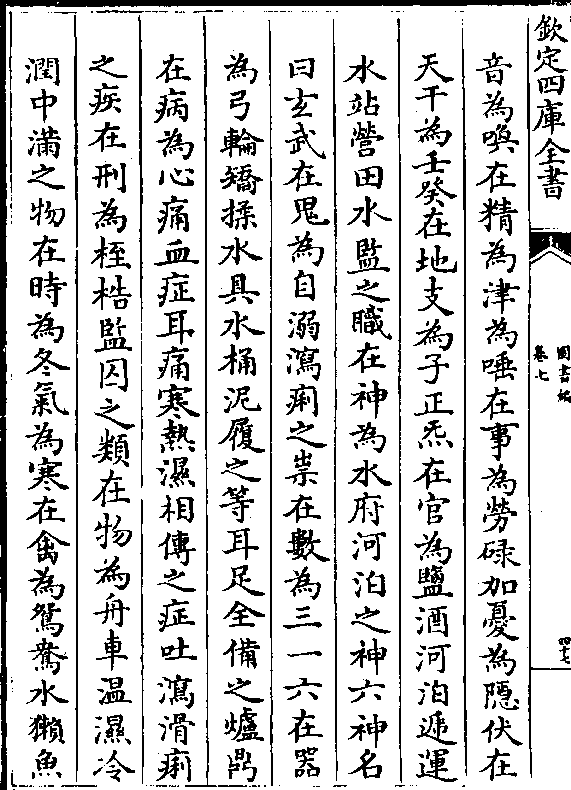 欽定四庫全書
圖書編
卷七
四十七
音為喚在精為津為唾在事為勞碌加憂為隠伏在
天干為壬癸在地支為子正炁在官為鹽酒河泊逓運
水站營田水監之職在神為水府河泊之神六神名
曰玄武在鬼為自溺瀉痢之祟在數為三一六在器
為弓輪矯揉水具水桶泥履之等耳足全備之爐鼎
在病為心痛血症耳痛寒熱濕相傳之症吐瀉滑痢
之疾在刑為桎梏監囚之類在物為舟車温濕冷
潤中滿之物在時為冬氣為寒在禽為鴛鴦水獺魚